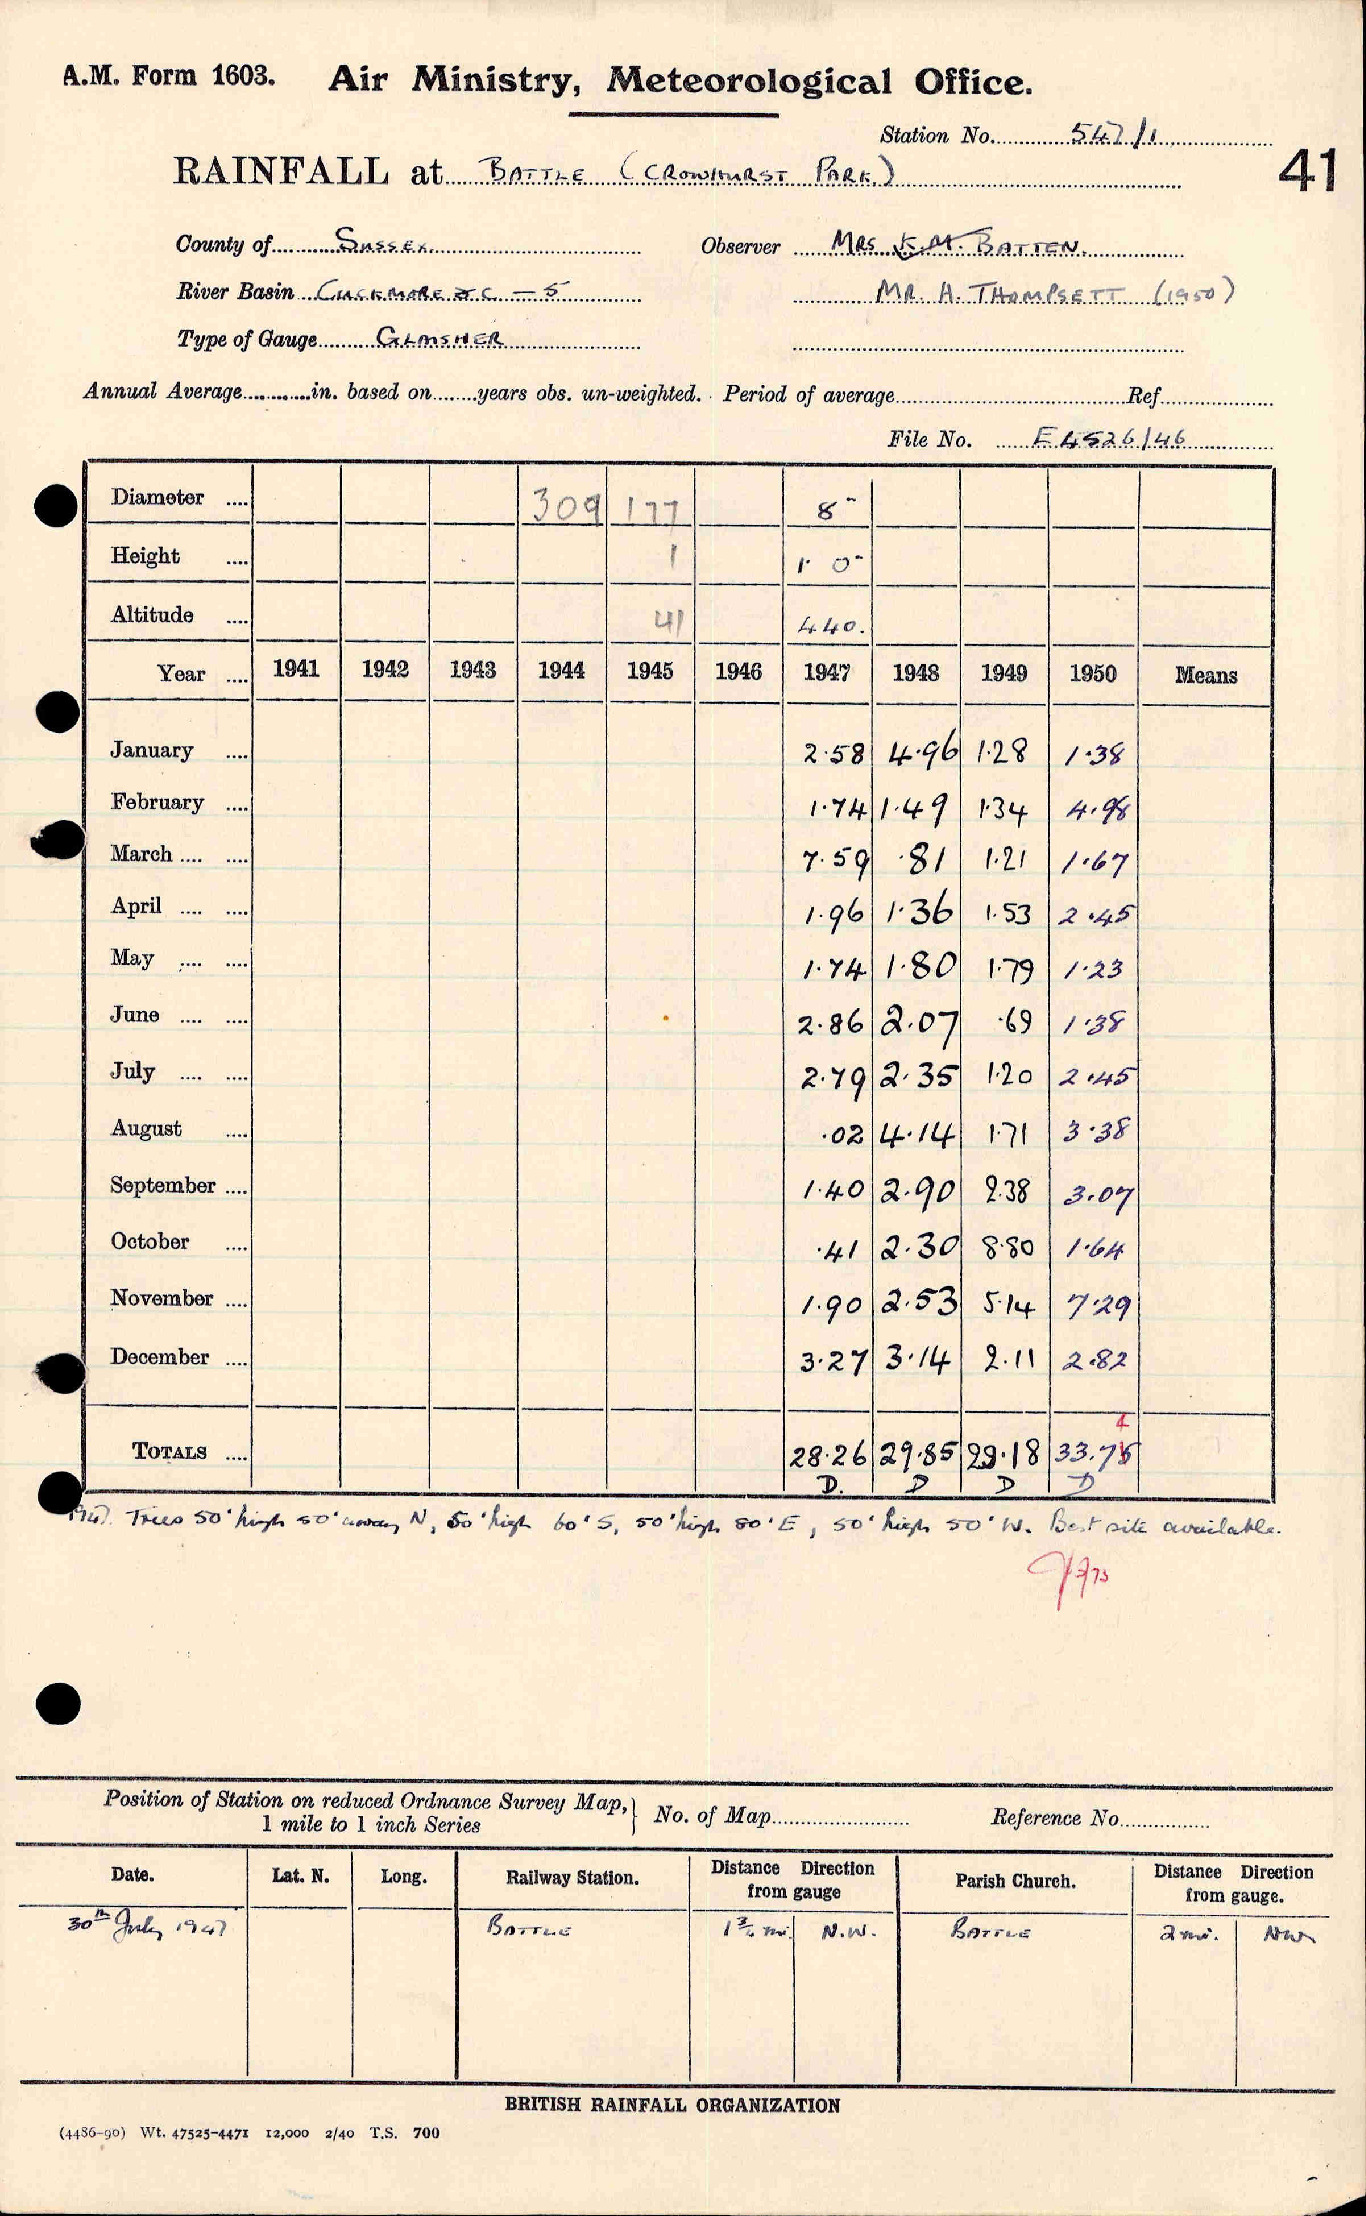 A.M. Form 1603. Air Ministry, Meteorological Office.
Station No. 547/1
41
RAINFALL at BATTLE (CROWHURST PARK.)
County of SUSSEX Observer MRS K.M. BATTEN.
River Basin CUCKMERE &C — 5 MR. H. THOMPSETT (1950)
Type of Gauge GLAISHER
Annual Average in. based on years obs. un-weighted. Period of average Ref
File No. E4526/46
Diameter .... 309 177 8"
Height .... 1 1' 0"
Altitude .... 41 440.
Year .... 1941 1942 1943 1944 1945 1946 1947 1948 1949 1950 Means
January .... 2.58 4.96 1.28 1.38
February .... 1.74 1.49 1.34 4.98
March .... .... 7.59 .81 1.21 1.67
April .... .... 1.96 1.36 1.53 2.45
May .... .... 1.74 1.80 1.79 1.23
June .... .... 2.86 2.07 .69 1.38
July .... .... 2.79 2.35 1.20 2.45
August .... .02 4.14 1.71 3.38
September .... 1.40 2.90 2.38 3.07
October .... .41 2.30 8.80 1.64
November .... 1.90 2.53 5.14 7.29
December .... 3.27 3.14 2.11 2.82
4
TOTALS .... 28.26 29.85 29.18 33.75
D. D D D
1947. Trees 50' high 50' away N, 50' high 60' S, 50' high 80' E, 50' high 50' W. Best site available.
Position of Station on reduced Ordnance Survey Map, No. of Map Reference No.
1 mile to 1 inch Series
Date. Lat. N. Long. Railway Station. Distance Direction from gauge Parish Church. Distance Direction from gauge.
30th July 1947 BATTLE 1¾ mi. N.W. BATTLE 2 mi. NW
BRITISH RAINFALL ORGANIZATION
(4486-90) Wt. 47525-4471 12,000 2/40 T.S. 700